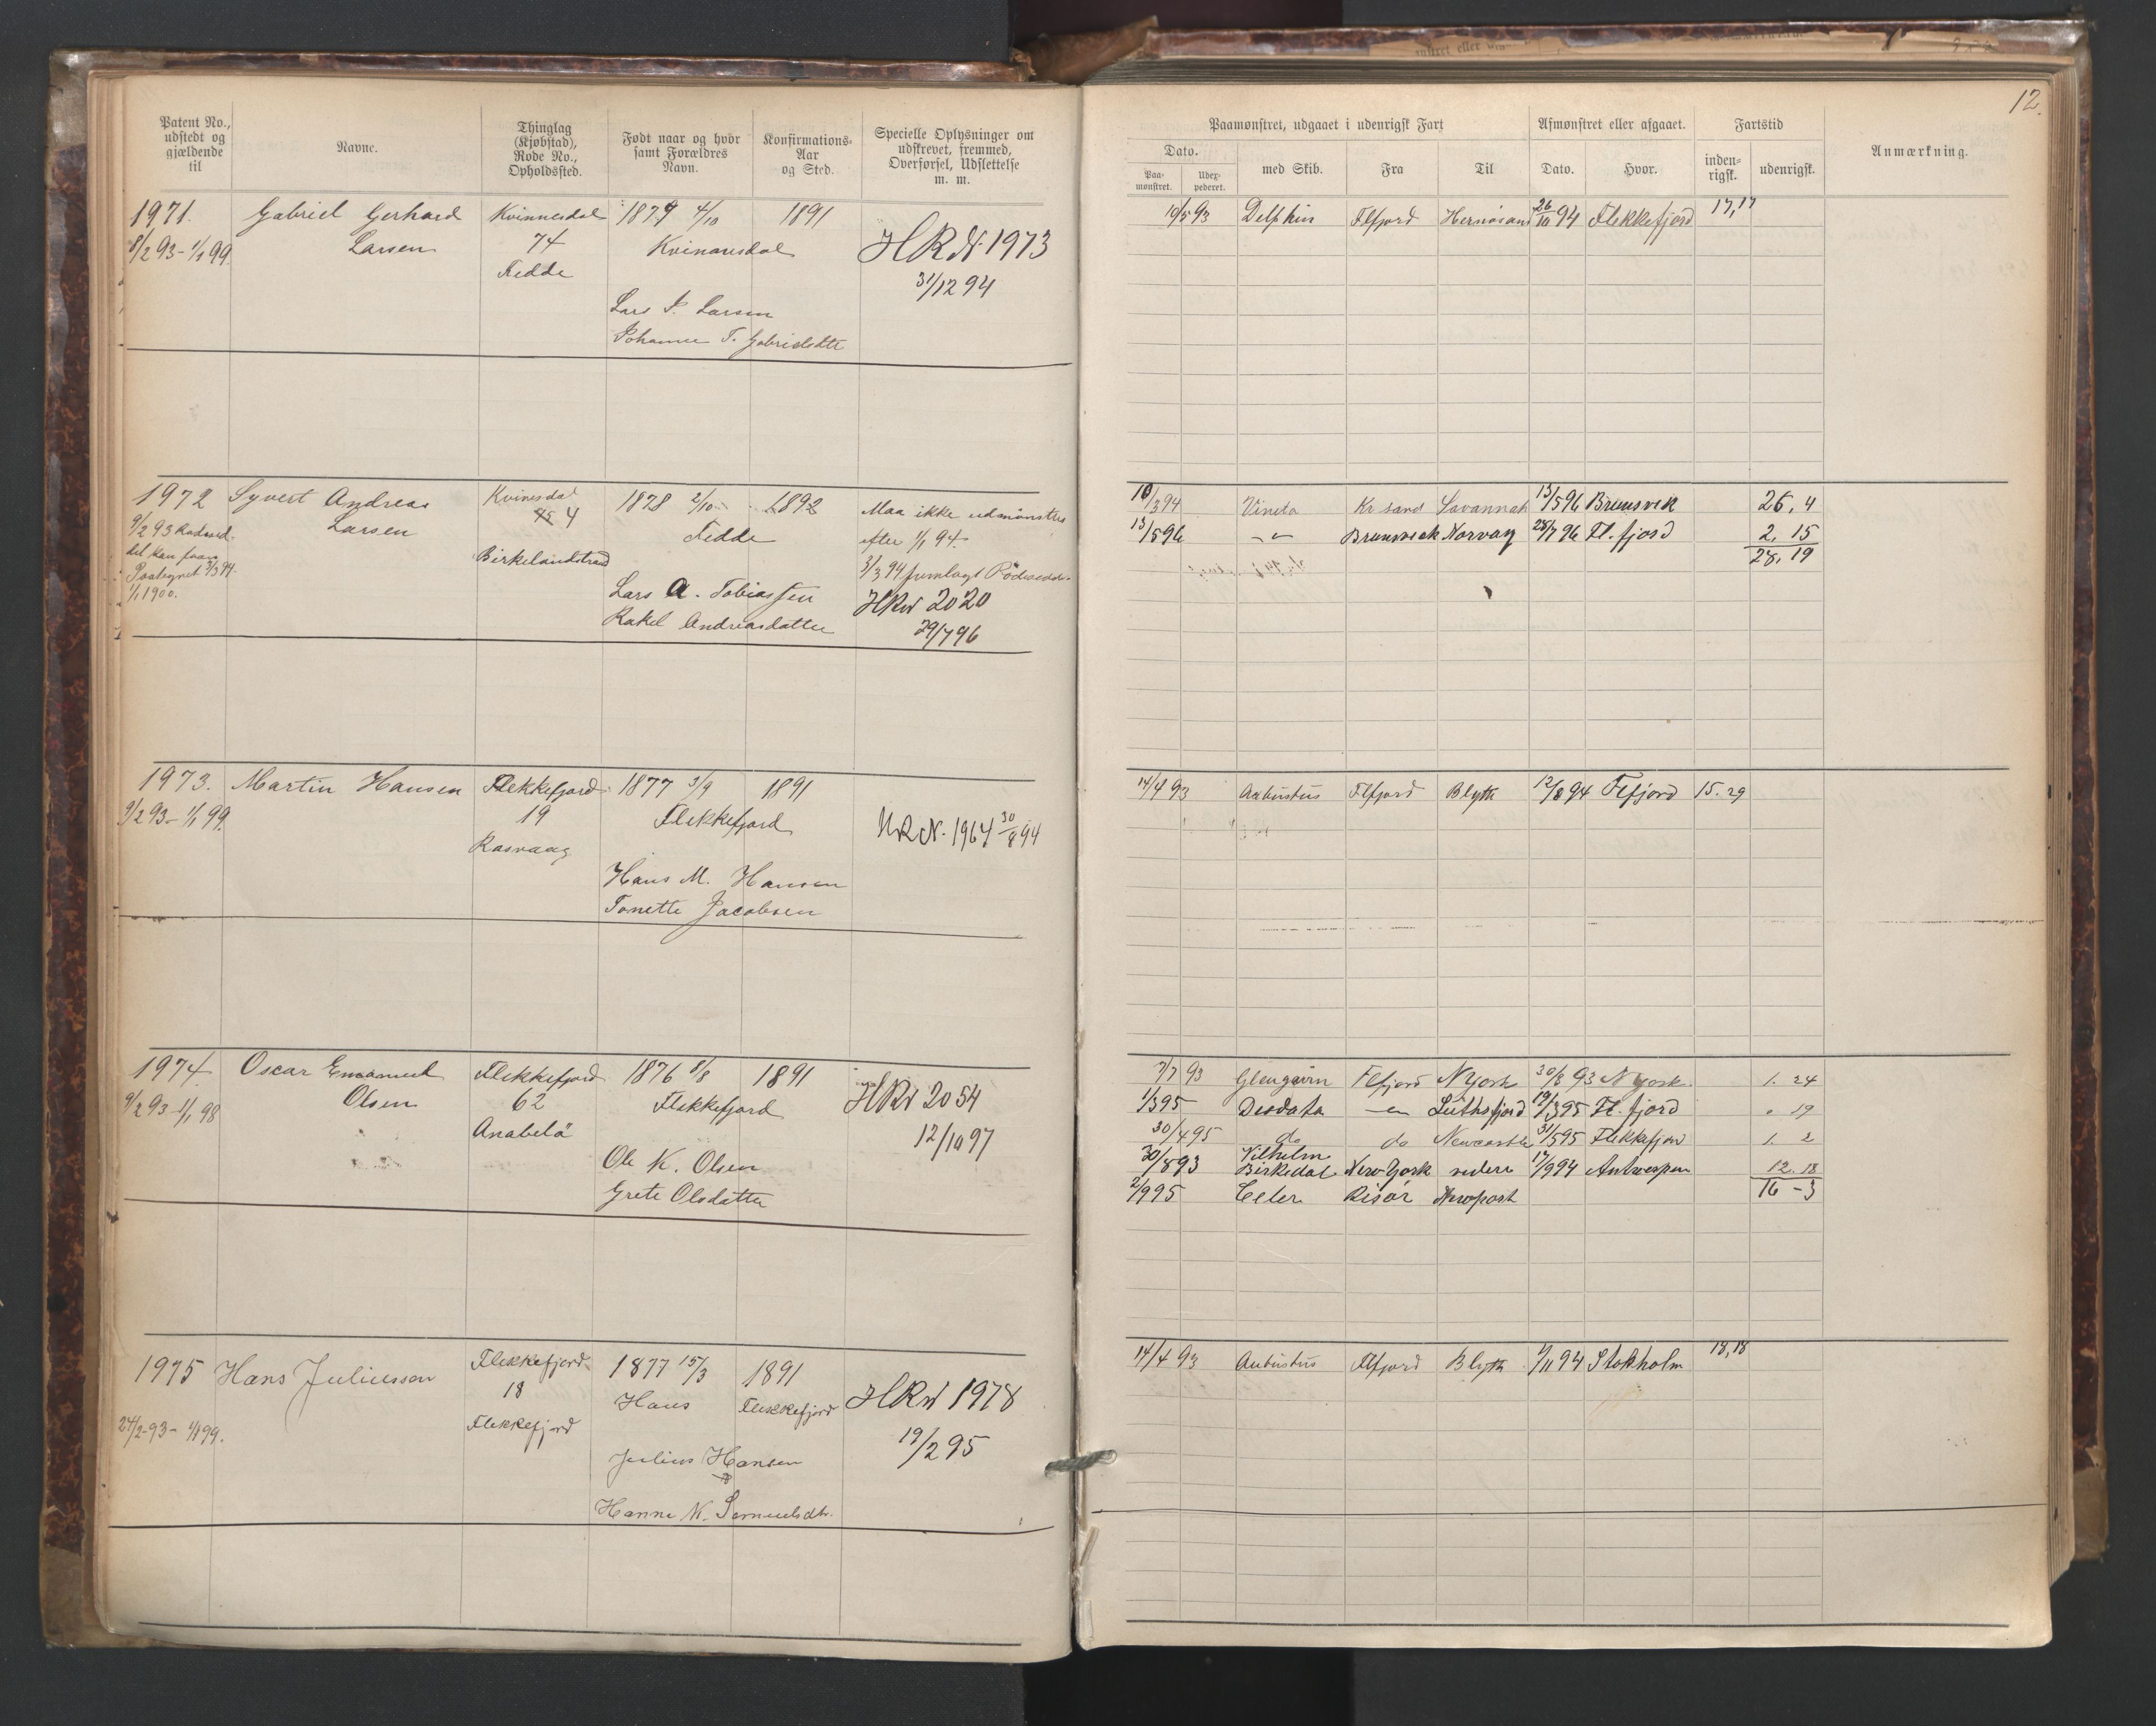 12.
Patent No., udstedt og gjældende til
Navne.
Thinglag (Kjøbstad), Rode No., Opholdssted.
Født naar og hvor samt Forældres Navn.
Konfirmations- Aar og Sted.
Specielle Oplysninger om udskrevet, fremmed, Overførsel, Udslettelse m. m.
Paamønstret, udgaaet i udenrigsk Fart
Afmønstret eller afgaaet.
Fartstid
Anmærkning.
Dato.
Paa- mønstret.
Udex- pederet.
med Skib.
Fra
Til
Dato.
Hvor.
inden- rigsk.
udenrigsk.
1971. Gabriel Gerhard Kvinnesdal 1879 4/10 1891
8/2 93 - 1/1 99. Larsen 74 Kvinansdal HRN. 1973
Fedde 31/12 94
Lars P. Larsen
Johanne T. Gabrielsdtt
10/5 93 Delphin Flfjord Hernösand 26/10 94 Flekkefjord 17,17
1972 Syvert Andreas Kvinesdal 1878 2/10 1892 Maa ikke udmönstres
9/2 93 Larsen 75 4 Fedde efter 1/1 94.
Birkelandstrand 3/3 94 fremlagt Rödeseddel
Paategnet 3/3 94.
1/1 1900.
Lars A. Tobiassen HRN 2020
Rakel Andreasdatter 29/7 96
10/3 94 Vineta Kr sand Savannah 13/5 96 Brunsvik 26,4
13/5 96 -"- Brunsvick Norvay 28/7 96 Fl. fjord 2.15
28,19
1973. Martin Hansen Flekkefjord 1877 3/9 1891
9/2 93 - 1/1 99. 19 Flekkefjord HRN. 1964 30/8 94
Rasvaag
Hans M. Hansen
Tonette Jacobsen
14/4 93 Flfjord Blyth 12/8 94 Flfjord 15.29
1974 Oscar Emanuel Flekkefjord 1876 8/8 1891
9/2 93 - 1/1 98 Olsen 62 Flekkefjord HRN 2054
Anabelö 12/10 97
Ole K. Olsen
Grete Olsdatter
7/7 93 Glengairn Flfjord N York 30/8 93 N York. 1. 24
1/3 95 Deodata -"- Leithsfjord 19/3 95 Fl. fjord " 19
30/4 95 do do Newcastle 31/5 95 Flekkefjord 1. 2
30/8 93 Vilhelm Birkedal New York videre 17/9 94 Antwerpen 12.18
2/9 95 Celer Risör Newport 16-3
1975 Hans Juliussen Flekkefjord 1877 15/3 1891
18 Hans Flekkefjord HRN 1978
24/2-93 - 1/1 99. Flekkefjord 19/2 95
Julius Hansen
Hanne N. Samuelsdtr.
14/4 93 Flfjord Blyth 9/11 94 Stokholm 18,18